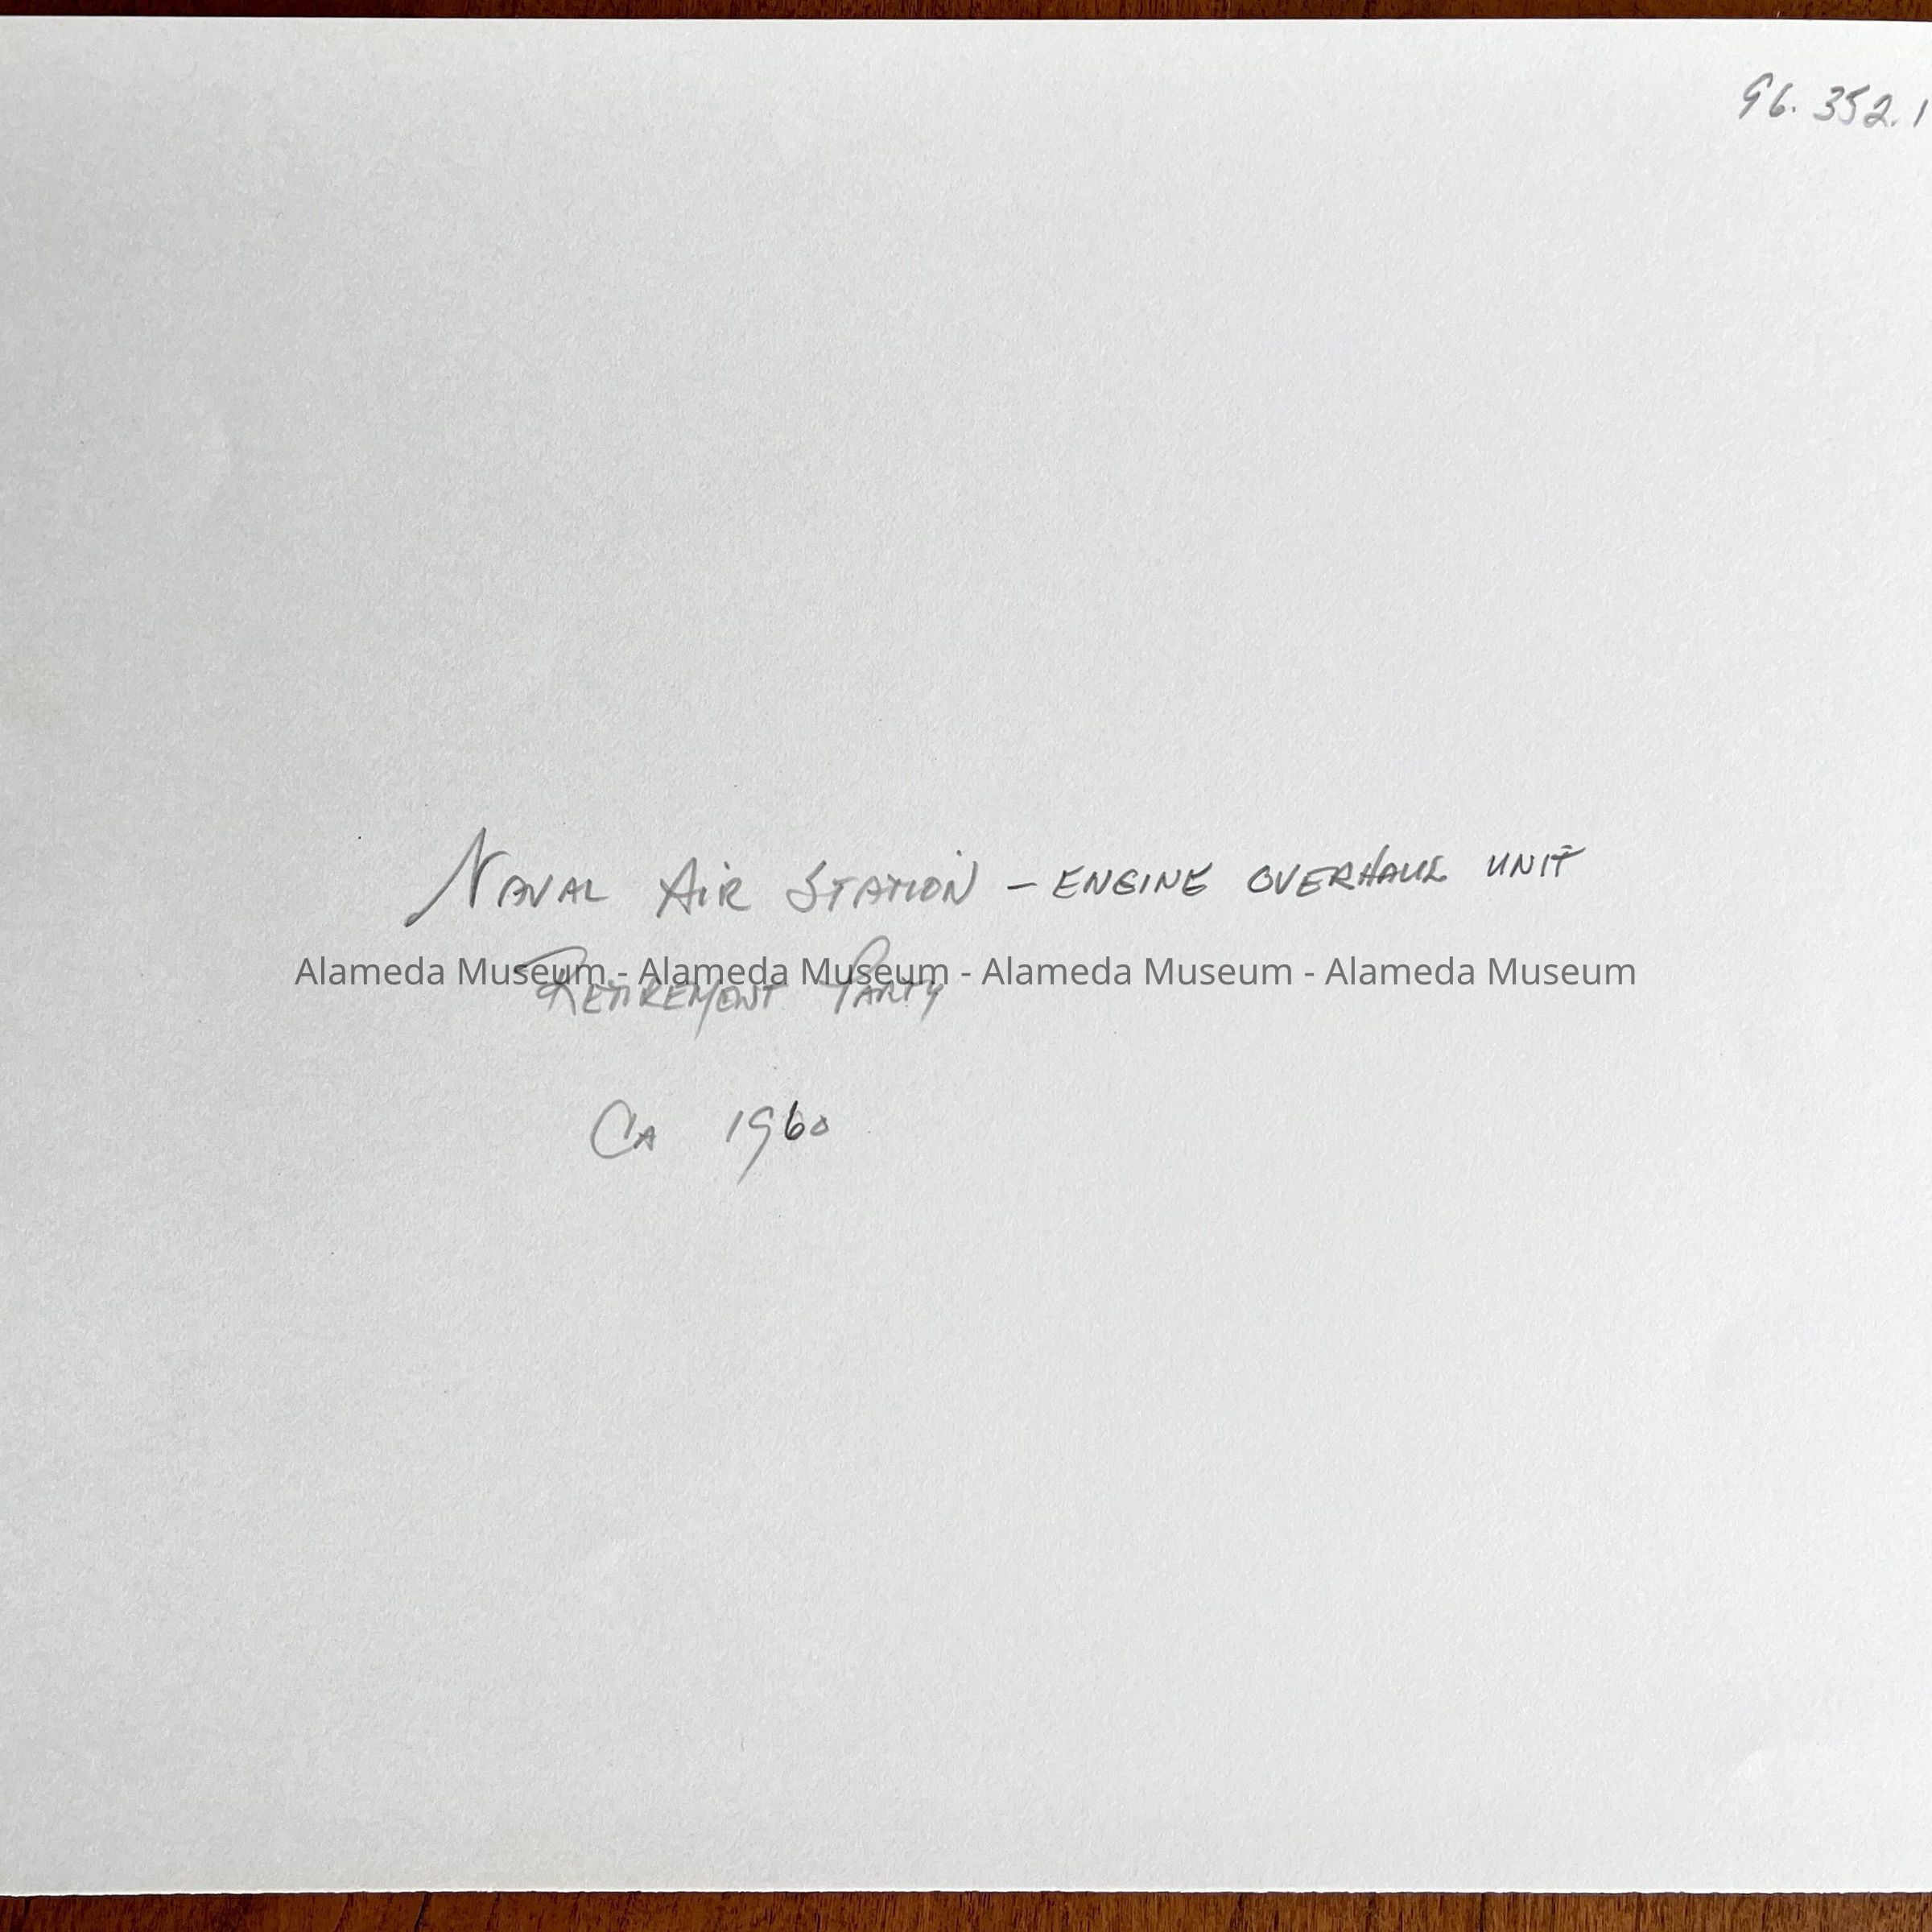 96.352.1
Naval Air Station - ENGINE OVERHAUL UNIT
Alameda Museum - Alameda Museum - Alameda Museum - Alameda Museum
Retirement Party
Ca 1960